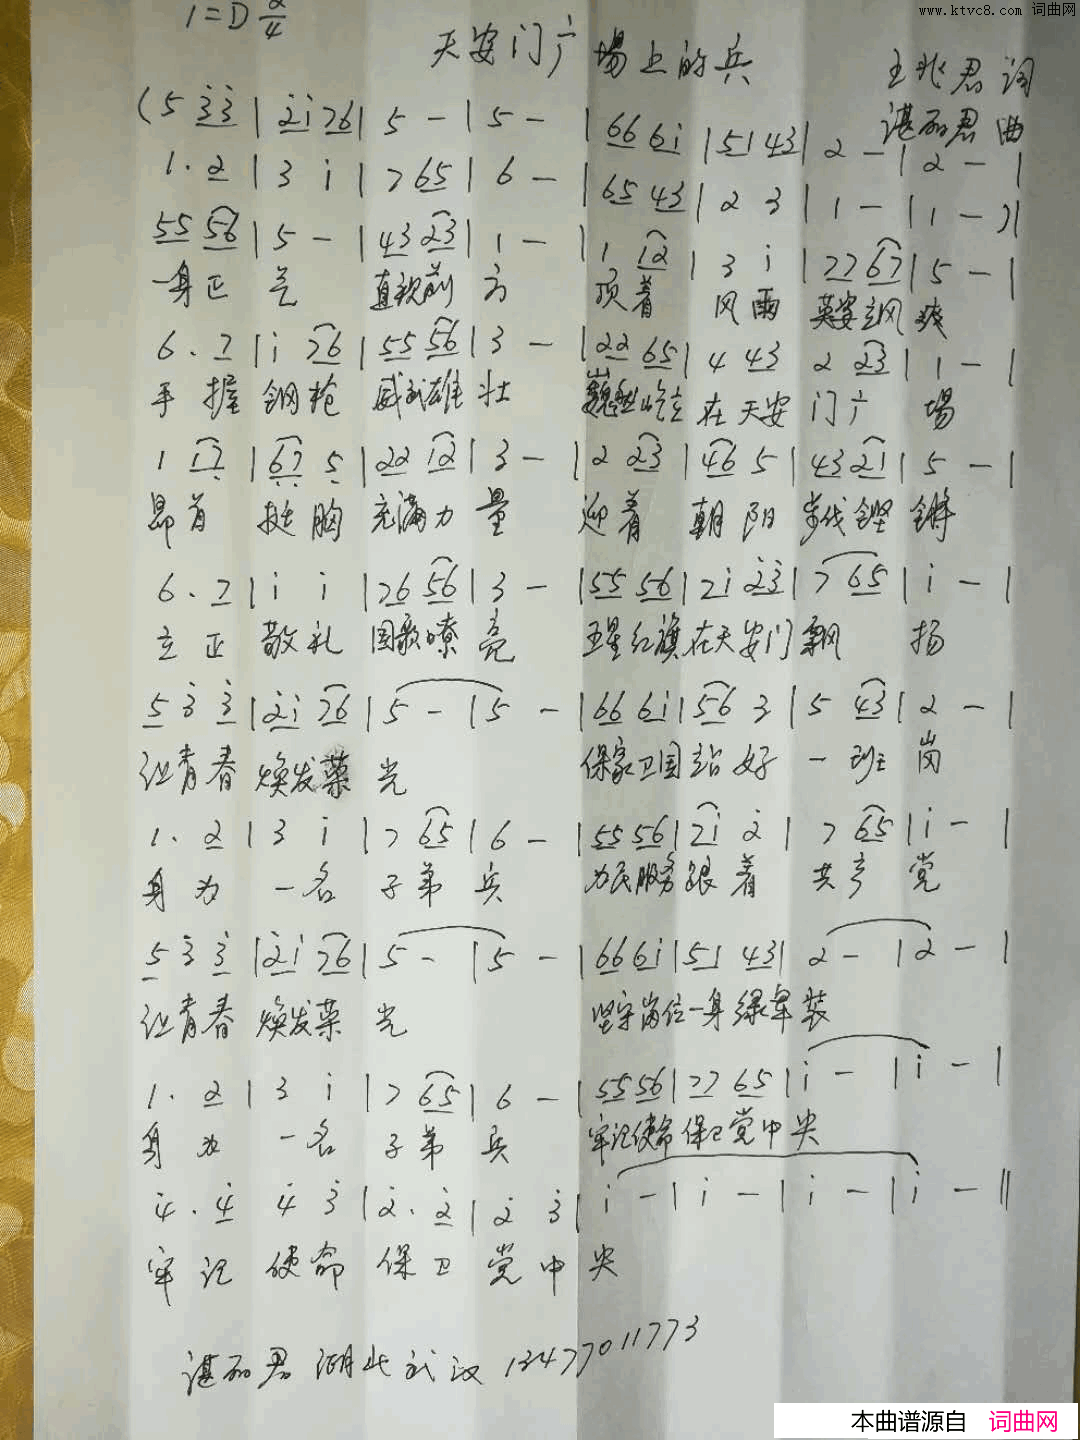 www.ktvc8.com 词曲网
1=D 2/4
天安门广場上的兵
王兆君 词
谌丽君 曲
(5 3̇3̇ | 2̇i76 | 5 - | 5 - | 66 6i | 51 43 | 2 - | 2 - |
1. 2 | 3 i | 7 65 | 6 - | 65 43 | 2 3 | 1 - | 1 - )|
55 56 | 5 - | 43 23 | 1 - | 1 12 | 3 i | 77 67 | 5 - |
一身正 气 直视前 方 顶着 风雨 英姿飒 爽
6. 7 | i 76 | 55 56 | 3 - | 22 65 | 4 43 2 23 | 1 - |
手 握 钢枪 威武雄 壮 巍然屹立 在天安 门广 場
1 17 | 67 5 | 22 12 | 3 - | 2 23 | 46 5 | 43 21 | 5 - |
昂首 挺胸 充满力 量 迎着 朝阳 步伐铿 锵
6. 7 | i i | 76 56 | 3 - | 55 56 | 7i 2̇3̇ | 7 65 | i - |
立 正 敬礼 国歌嘹 亮 五星红旗在天安门飘 扬
5 3̇ 3̇ | 2̇i 76 | 5 - | 5 - | 66 6i | 56 3 | 5 43 | 2 - |
让青春 焕发荣 光 保家卫国站 好 一 班 岗
1. 2 | 3 i | 7 65 | 6 - | 55 56 | 7i 2̇ | 7 65 | i - |
身 为 一名 子弟 兵 为民服务跟 着 共产 党
5 3̇ 3̇ | 2̇i 76 | 5 - | 5 - | 66 6i | 51 43 | 2 - | 2 - |
让青春 焕发荣 光 坚守岗位一身绿军装
1. 2 | 3 i | 7 65 | 6 - | 55 56 | 77 65 | i - | i - |
身 为 一名 子弟 兵 牢记使命保卫党中央
4̇. 4̇ 4̇ 3̇ | 2̇. 2̇ | 2̇ 3̇ | i - | i - | i - | i - ‖
牢 记 使命 保 卫 党中 央
谌丽君 湖北武汉 13477011773
本曲谱源自 词曲网